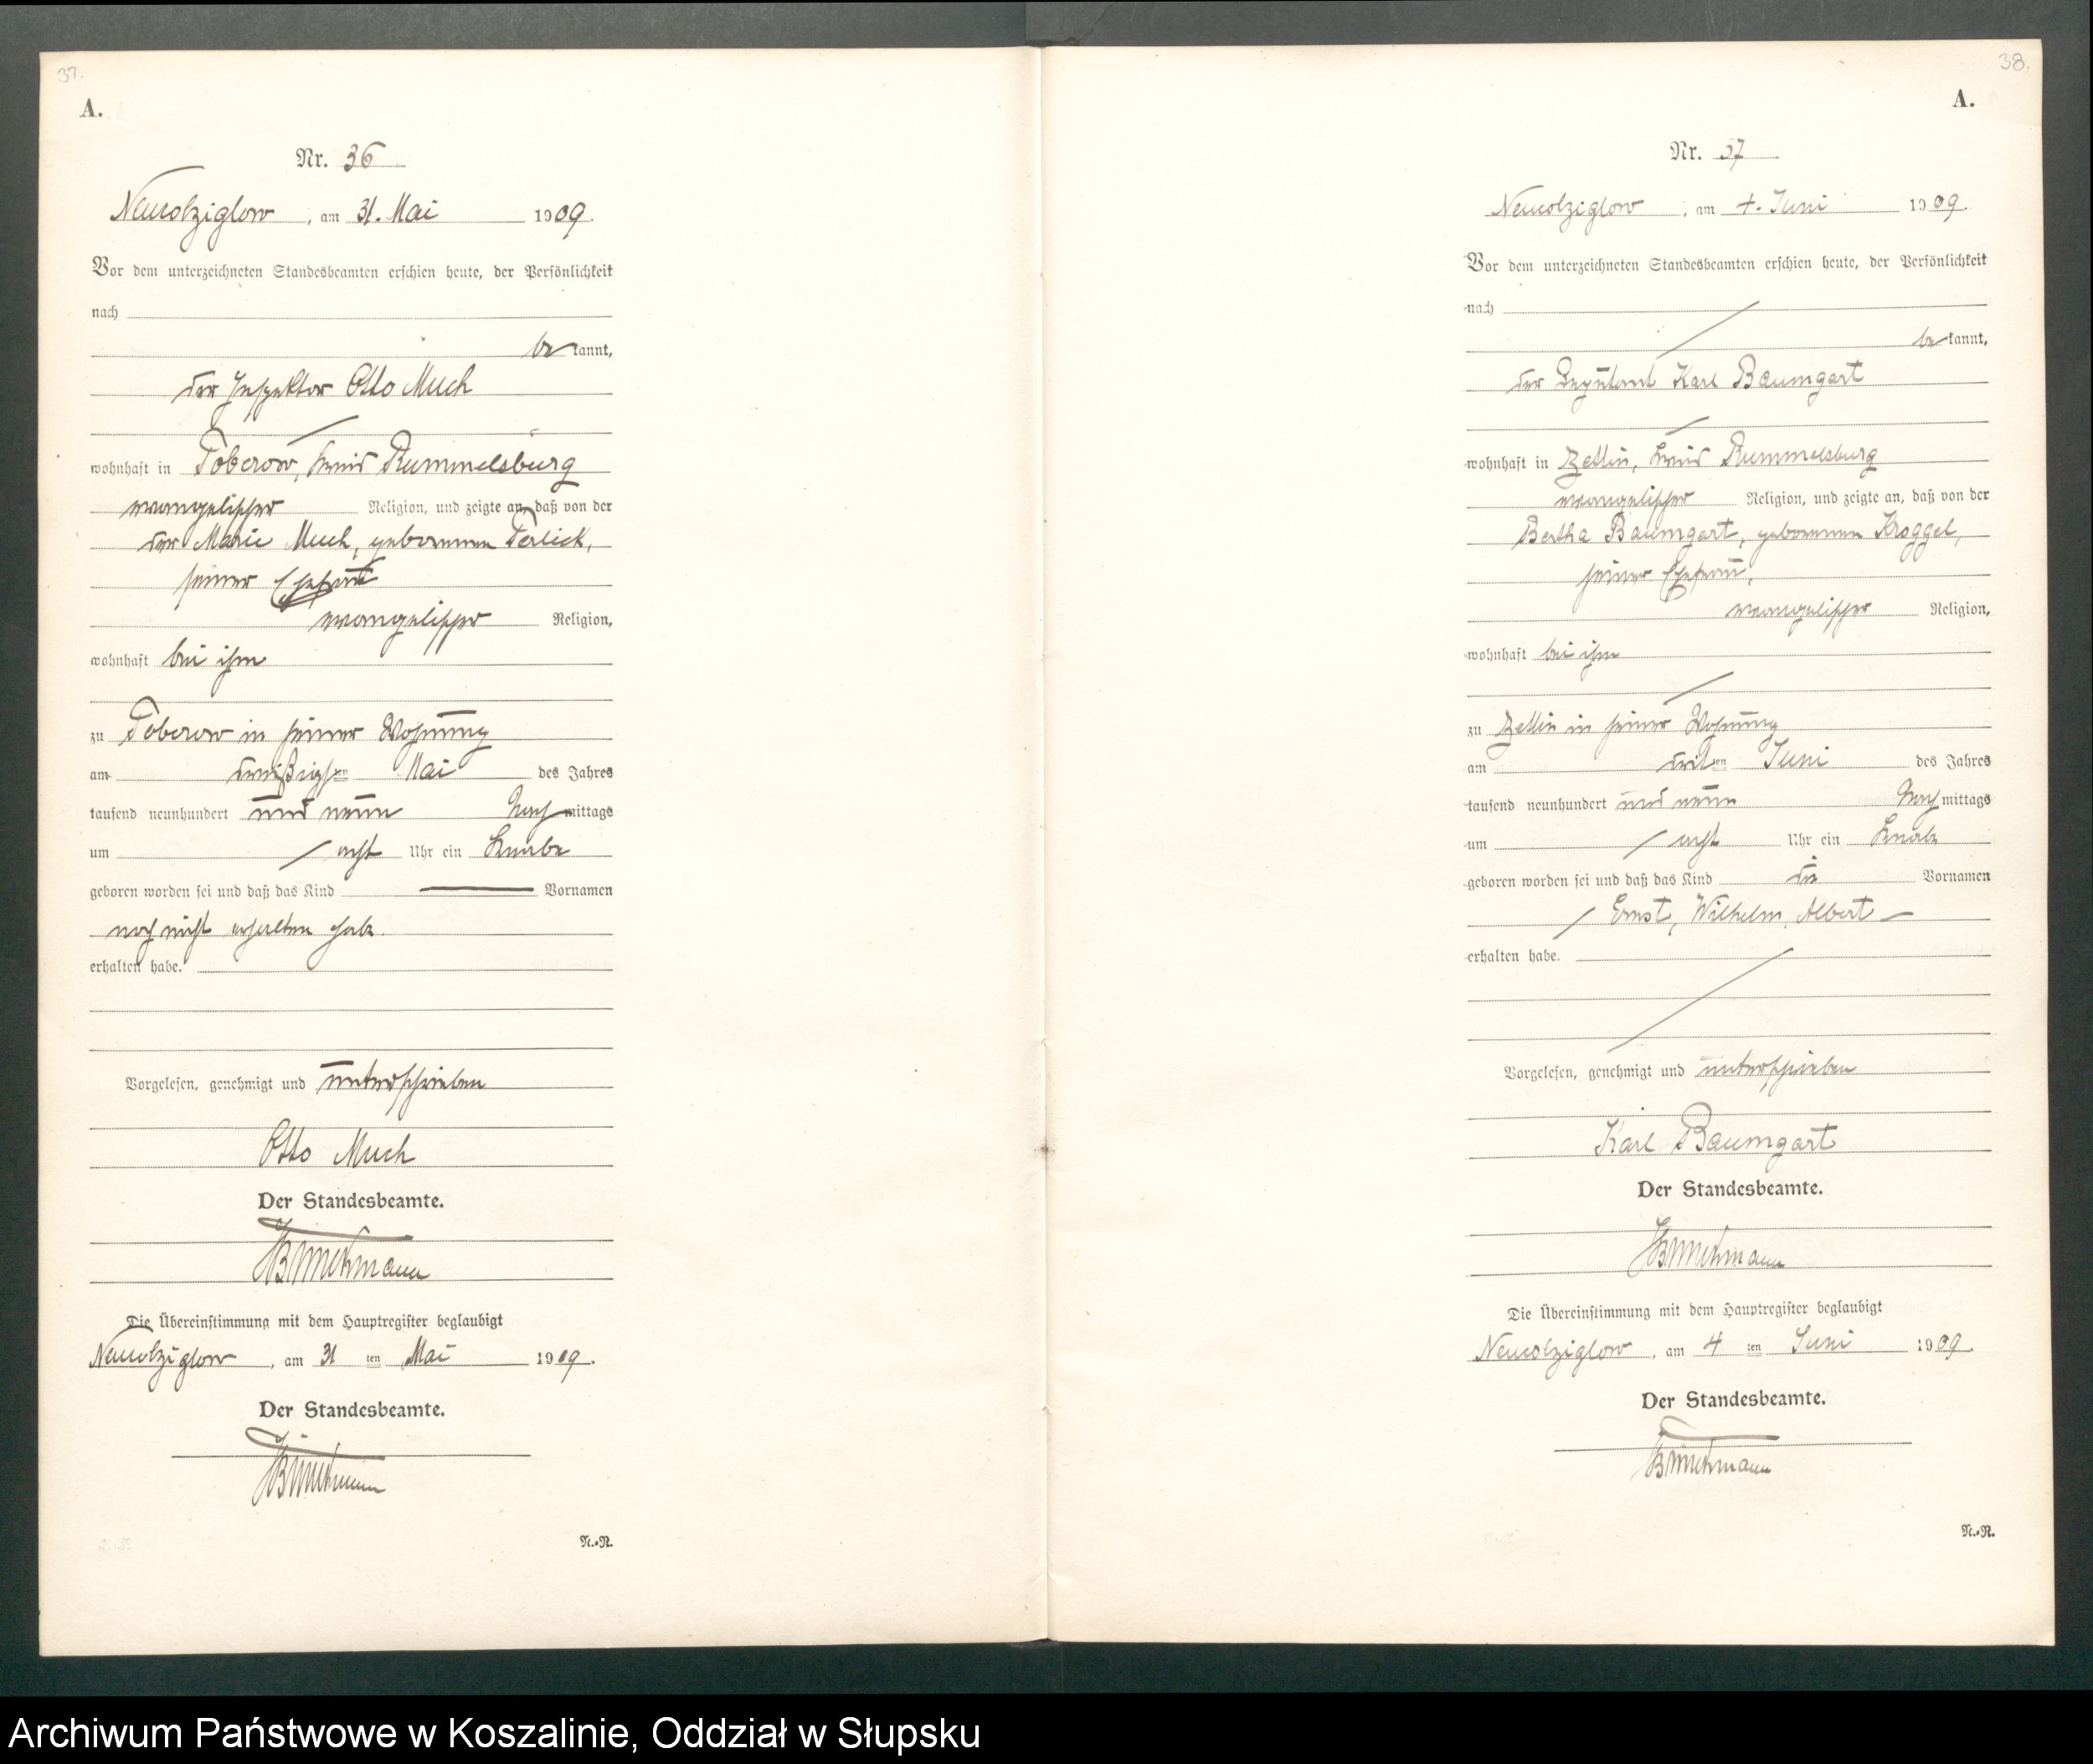 37.
A.
Nr. 36
Neukolziglow, am 31. Mai 1909.
Vor dem unterzeichneten Standesbeamten erschien heute, der Persönlichkeit
nach
bekannt,
der Inspektor Otto Much
wohnhaft in Toberow, Kreis Rummelsburg
evangelischer Religion, und zeigte an, daß von der
der Marie Much, geborenen Terlick,
seiner Ehefrau
evangelischer Religion,
wohnhaft bei ihm
zu Toberow in seiner Wohnung
am dreißigsten Mai des Jahres
tausend neunhundert und neun Nachmittags
um acht Uhr ein Knabe
geboren worden sei und daß das Kind Vornamen
noch nicht erhalten habe.
erhalten habe.
Vorgelesen, genehmigt und unterschrieben
Otto Much
Der Standesbeamte.
Die Übereinstimmung mit dem Hauptregister beglaubigt
Neukolziglow, am 31 ten Mai 1909.
Der Standesbeamte.
N.-N.
38.
A.
Nr. 37
Neukolziglow, am 4. Juni 1909.
Vor dem unterzeichneten Standesbeamten erschien heute, der Persönlichkeit
nach
bekannt,
der Deputant Karl Baumgart
wohnhaft in Zettin, Kreis Rummelsburg
evangelischer Religion, und zeigte an, daß von der
Bertha Baumgart, geborenen Kroggel,
seiner Ehefrau,
evangelischer Religion,
wohnhaft bei ihm
zu Zettin in seiner Wohnung
am dritten Juni des Jahres
tausend neunhundert und neun Nachmittags
um acht Uhr ein Knabe
geboren worden sei und daß das Kind die Vornamen
Ernst, Wilhelm, Albert
erhalten habe.
Vorgelesen, genehmigt und unterschrieben
Karl Baumgart
Der Standesbeamte.
Die Übereinstimmung mit dem Hauptregister beglaubigt
Neukolziglow, am 4 ten Juni 1909.
Der Standesbeamte.
N.-N.
Archiwum Państwowe w Koszalinie, Oddział w Słupsku